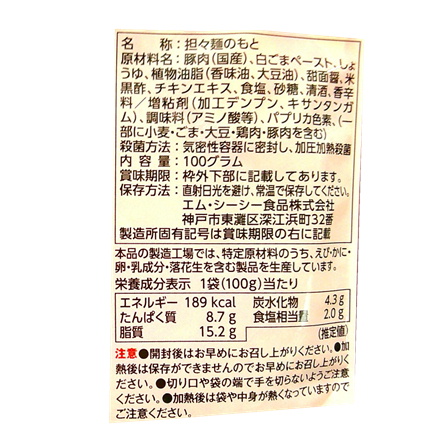 名　　称：担々麺のもと
原材料名：豚肉(国産)、白ごまペースト、しょ
うゆ、植物油脂(香味油、大豆油)、甜面醤、米
黒酢、チキンエキス、食塩、砂糖、清酒、香辛
料／増粘剤(加工デンプン、キサンタンガ
ム)、調味料(アミノ酸等)、パプリカ色素、(一
部に小麦・ごま・大豆・鶏肉・豚肉を含む)
殺菌方法：気密性容器に密封し、加圧加熱殺菌
内 容 量：100グラム
賞味期限：枠外下部に記載してあります。
保存方法：直射日光を避け、常温で保存してください。
エム・シーシー食品株式会社
神戸市東灘区深江浜町32番
製造所固有記号は賞味期限の右に記載
本品の製造工場では、特定原材料のうち、えび・かに・
卵・乳成分・落花生を含む製品を生産しています。
栄養成分表示　1袋(100g)当たり
エネルギー 189 kcal 炭水化物 4.3 g
たんぱく質 8.7 g 食塩相当量 2.0 g
脂質 15.2 g (推定値)
注意●開封後はお早めにお召し上がりください。●加
熱後は保存ができませんのでお早めにお召し上がりく
ださい。●切り口や袋の端で手を切らないようご注意く
ださい。●加熱後は袋や中身が熱くなっていますので
ご注意ください。